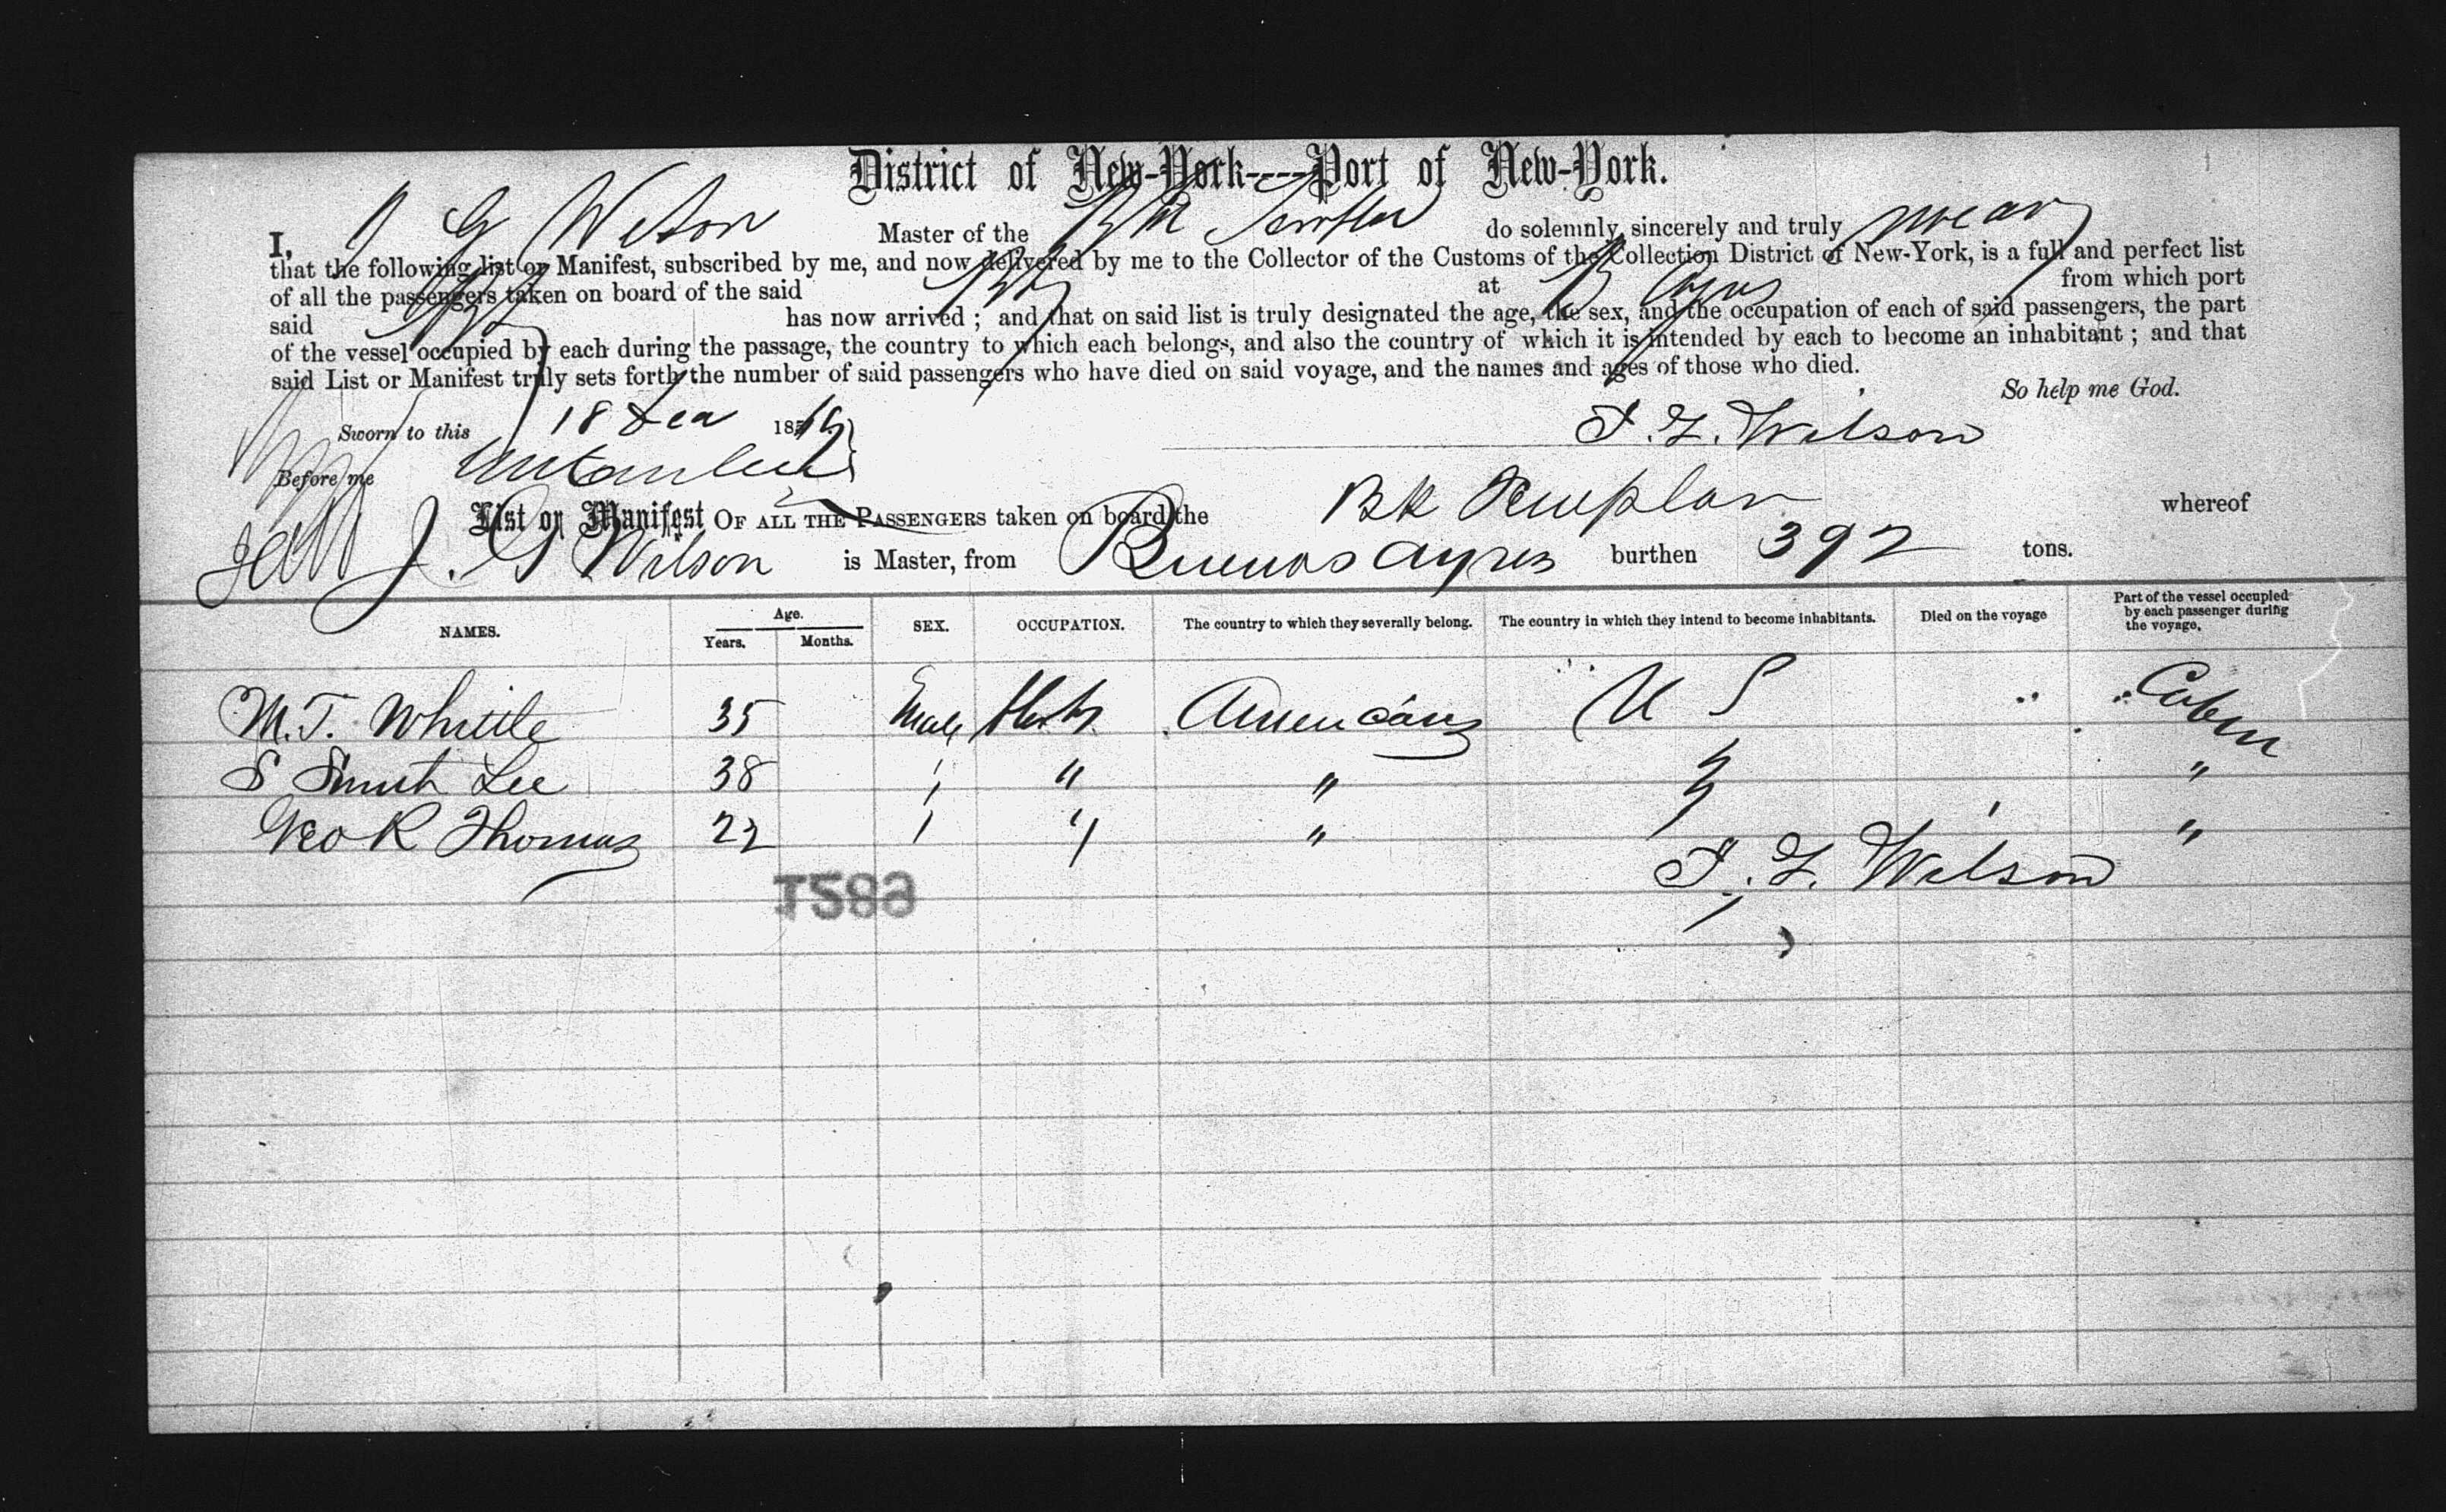 District of New-York----Port of New-York.
I, J G Wilson Master of the Bk Templar do solemnly, sincerely and truly swear
that the following list or Manifest, subscribed by me, and now delivered by me to the Collector of the Customs of the Collection District of New-York, is a full and perfect list
of all the passengers taken on board of the said Bk at B Ayres from which port
said Bk has now arrived ; and that on said list is truly designated the age, the sex, and the occupation of each of said passengers, the part
of the vessel occupied by each during the passage, the country to which each belongs, and also the country of which it is intended by each to become an inhabitant ; and that
said List or Manifest truly sets forth the number of said passengers who have died on said voyage, and the names and ages of those who died.
So help me God.
Sworn to this 18 185
J. G. Wilson
Before me
List or Manifest OF ALL THE PASSENGERS taken on board the Bk Templar whereof
J. G Wilson is Master, from Buenos Ayres burthen 392 tons.
NAMES. Age. Years. Months. SEX. OCCUPATION. The country to which they severally belong. The country in which they intend to become inhabitants. Died on the voyage Part of the vessel occupied by each passenger during the voyage.
M. T. Whittle 35 Male Americans U S " Cabin
S Smith Lee 38 " " "
Geo R Thomas 22 " " "
J. G. Wilson
1582